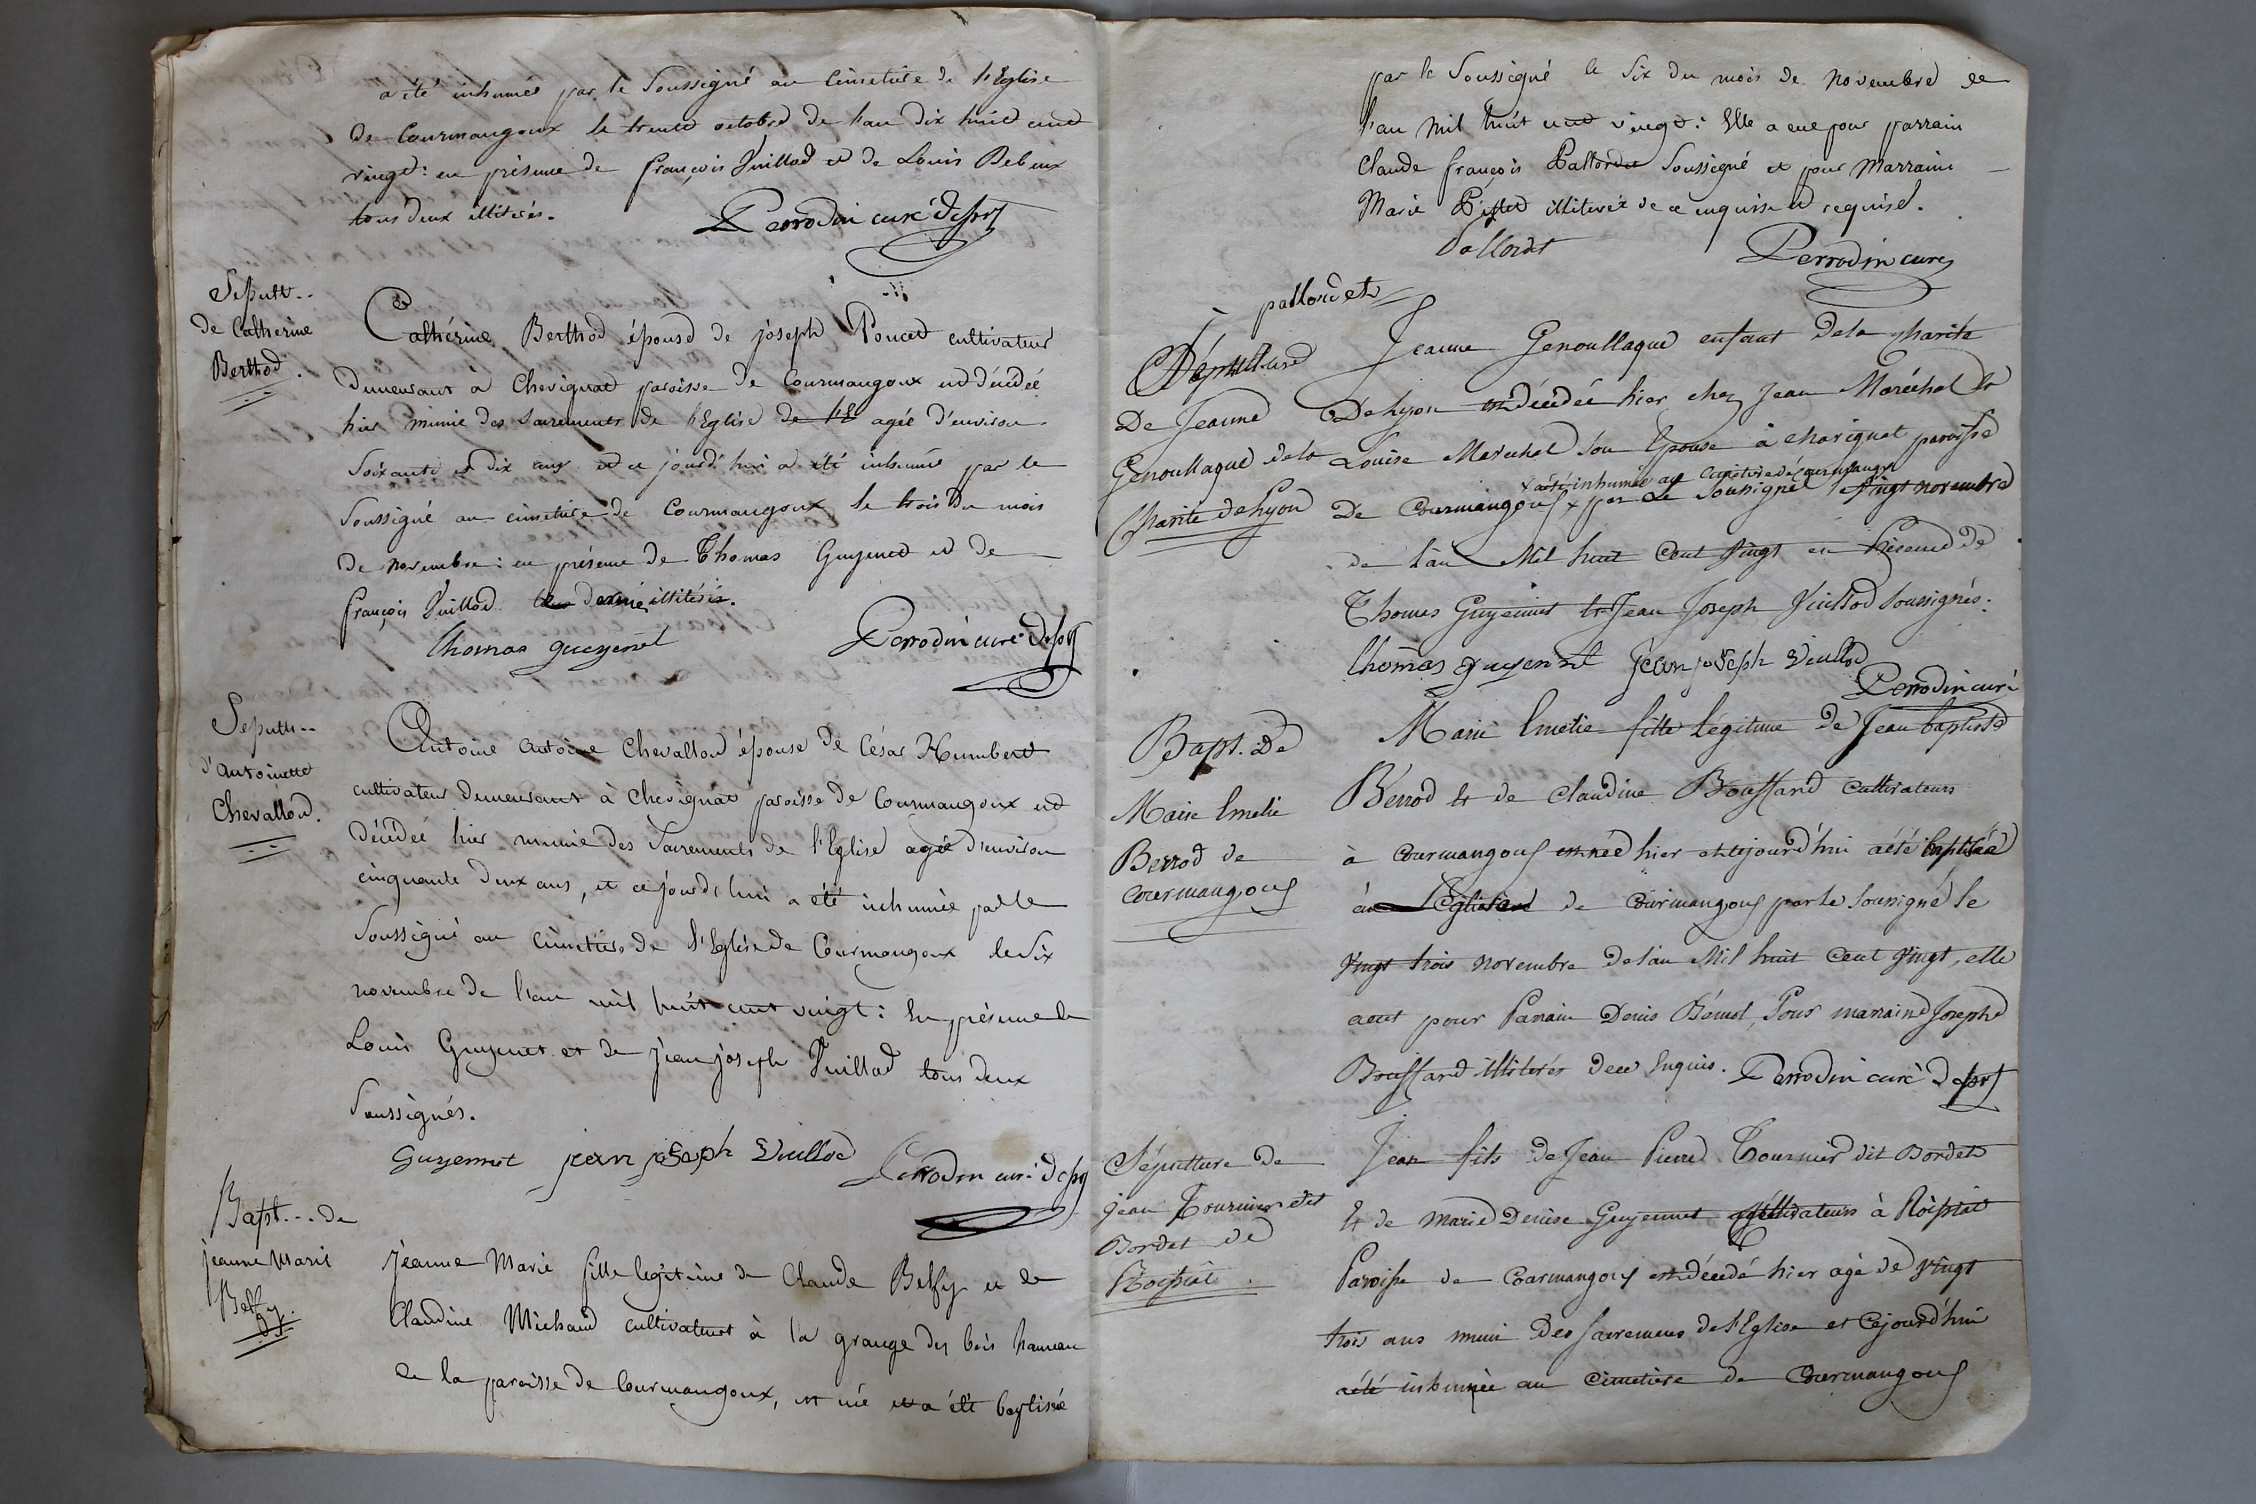 a été inhumée par le Soussigné au Cimetière de l'Eglise
de Courmangoux le trente octobre de l'an dix huit cent
vingt: en présence de françois Vuillod et de Louis Bebeux
tous deux illitérés.
Perrodin curé desst
Sepult..
de Catherine
Berthod.
Cathérine Berthod épouse de joseph Poncet cultivateur
demeurant à Chevignat paroisse de Courmangoux est décédée
hier munie des Sacrements de l'Eglise de l'E agée d'environ
Soixante et dix ans et ce jourd'hui a été inhumée par le
Soussigné au cimetière de Courmangoux le trois du mois
de novembre: en présence de Thomas Guyenet et de
françois Vuillod illitéré.
Thomas guyennet
Perrodin curé desst
Sepult..
d'antoinette
Chevallon.
Antoine antoine Chevallon épouse de César Humbert
cultivateur demeurant à Chevignat paroisse de Courmangoux est
décédée hier munie des Sacrements de l'Eglise agée d'environ
cinquante deux ans, et ce jourd'hui a été inhumée par le
Soussigné au cimetière de l'Eglise de Courmangoux le Six
novembre de l'an mil huit cent vingt: En présence de
Louis Guyenet et de jean joseph Vuillod tous deux
Soussignés.
Guyennet jean joseph Vuillod
Perrodin curé desst
Bapt... de
jeanne Marie
Belfy.
Jeanne Marie fille légitime de Claude Belfy et de
Claudine Michaud cultivateurs à la grange des bois hameau
de la paroisse de Courmangoux, est née et a été baptisée
par le Soussigné le Six du mois de novembre de
l'an Mil huit cent vingt: Elle a eue pour parrain
Claude françois Pallordet Soussigné et pour Marraine
Marie illiterée de ce enquise et requise.
Pallordet
Perrodin curé
pallordet
Sépulture
De Jeanne
Genoullaque de la
Charité de Lyon
Jeanne Genoullaque enfant de la charité
De Lyon est décédée hier chez Jean Maréchal et
Louise Maréchal son Epouse à chavignat paroisse
x a été inhumée au Cimetière de Courmangoux
De Courmangoux x par Le Soussigné le vingt novembre
de l'an Mil huit Cent vingt en Présence de
Thomas Guyennet et Jean Joseph Vuillod Soussignés.
Thomas guyennet jean joseph Vuillod
Perrodin curé
Bapt. De
Marie Emelie
Berrod de
Courmangoux
Marie Emelie fille légitime de Jean baptiste
Bérrod et de Claudine Bouffard Cultivateurs
à Courmangoux est née hier et cejourd'hui a été baptisée
en L'Eglise de Courmangoux par le Soussigné le
vingt trois novembre de l'an Mil huit Cent vingt, elle
a eut pour Parrain Denis Pour marraine Josephe
Bouffard illiterés de ce Enquis. Perrodin curé desst
Sépulture de
jean Tournier dit
Bordet de
Roissiat
Jean fils de Jean Pierre Tournier dit Bordet
Et de marie Denise Guyennet Cultivateurs à Roissiat
Paroisse de Courmangoux est décédé hier agé de vingt
trois ans muni Des Sacremens de l'Eglise et Cejourd'hui
a été inhumée au Cimetière de Courmangoux